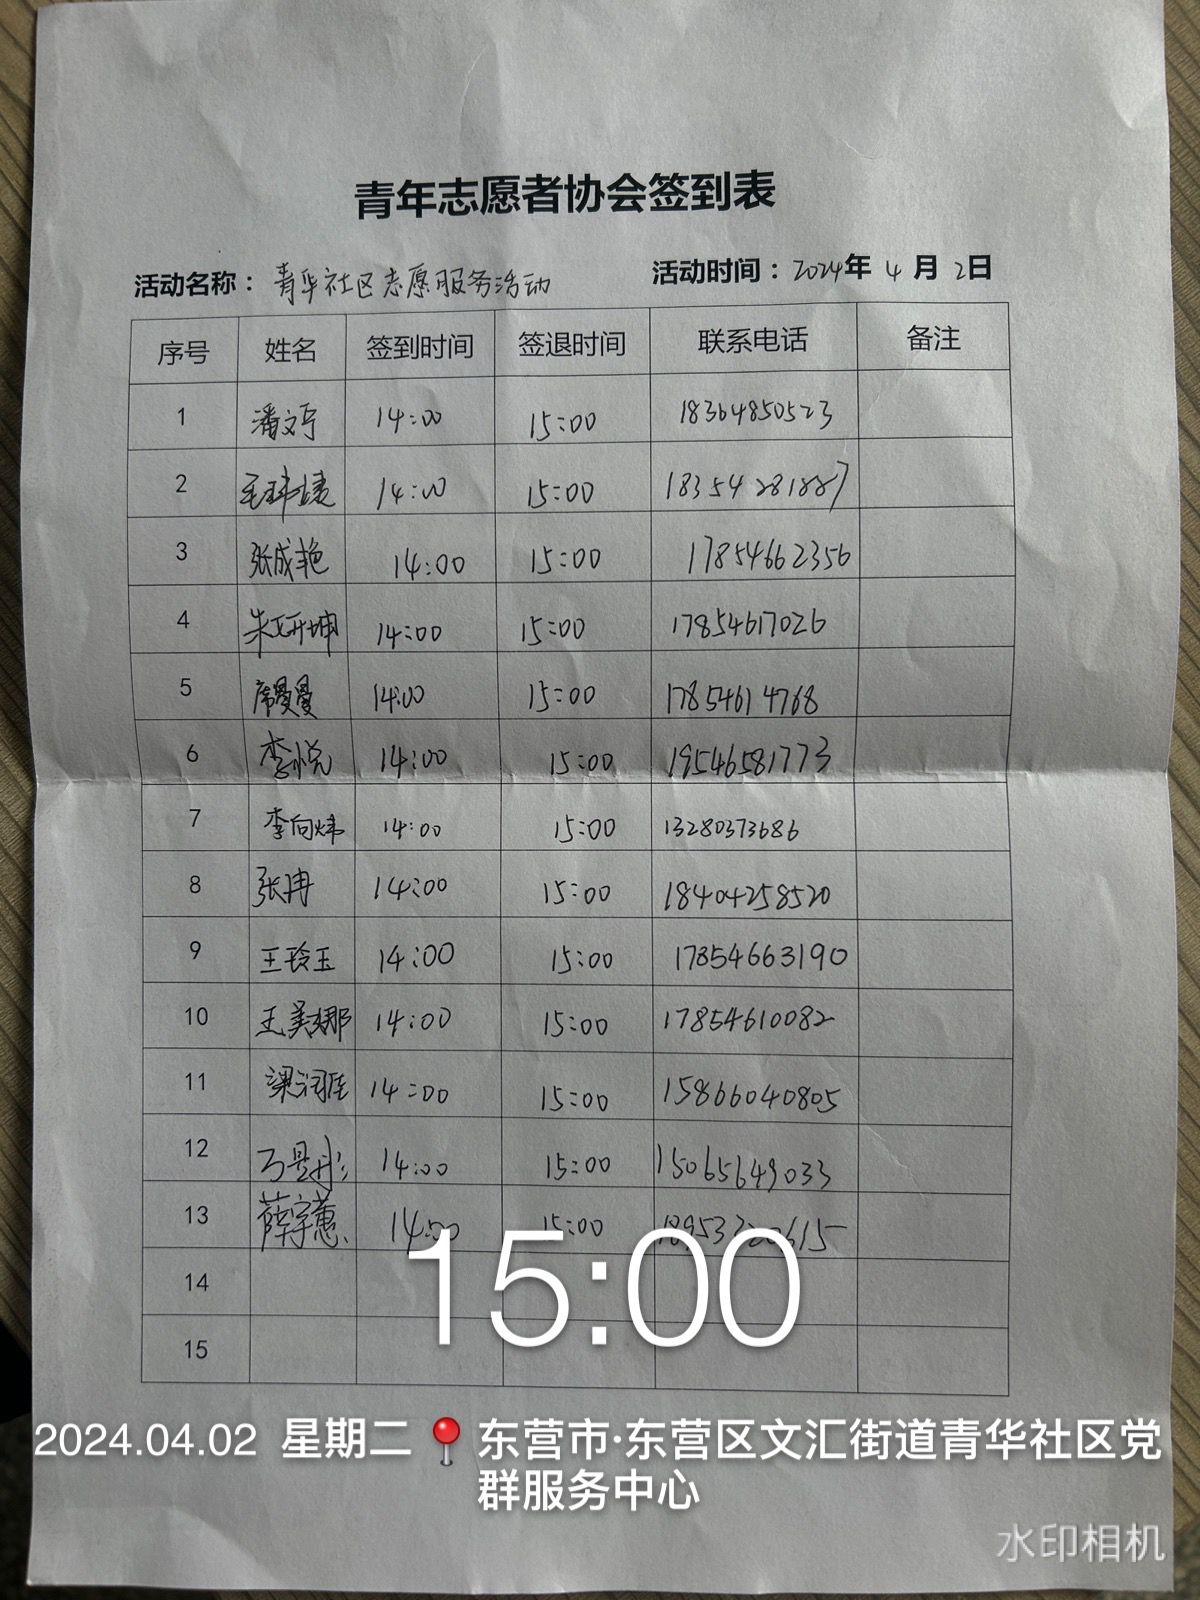 青年志愿者协会签到表
活动名称：青华社区志愿服务活动 活动时间：2024年 4 月 2日
序号 姓名 签到时间 签退时间 联系电话 备注
1 潘文亭 14:00 15:00 18364850523
2 14:00 15:00 18354281887
3 张成艳 14:00 15:00 17854662356
4 朱妍坤 14:00 15:00 17854617026
5 席曼曼 14:00 15:00 17854614768
6 李悦 14:00 15:00 19546581773
7 李向炜 14:00 15:00 13280373686
8 张冉 14:00 15:00 18404258520
9 王玲玉 14:00 15:00 17854663190
10 王美娜 14:00 15:00 17854610082
11 梁润佳 14:00 15:00 15866040805
12 14:00 15:00 15065649033
13 薛宇蕙 14:00 15:00
14
15
15:00
2024.04.02 星期二 东营市·东营区文汇街道青华社区党
群服务中心
水印相机